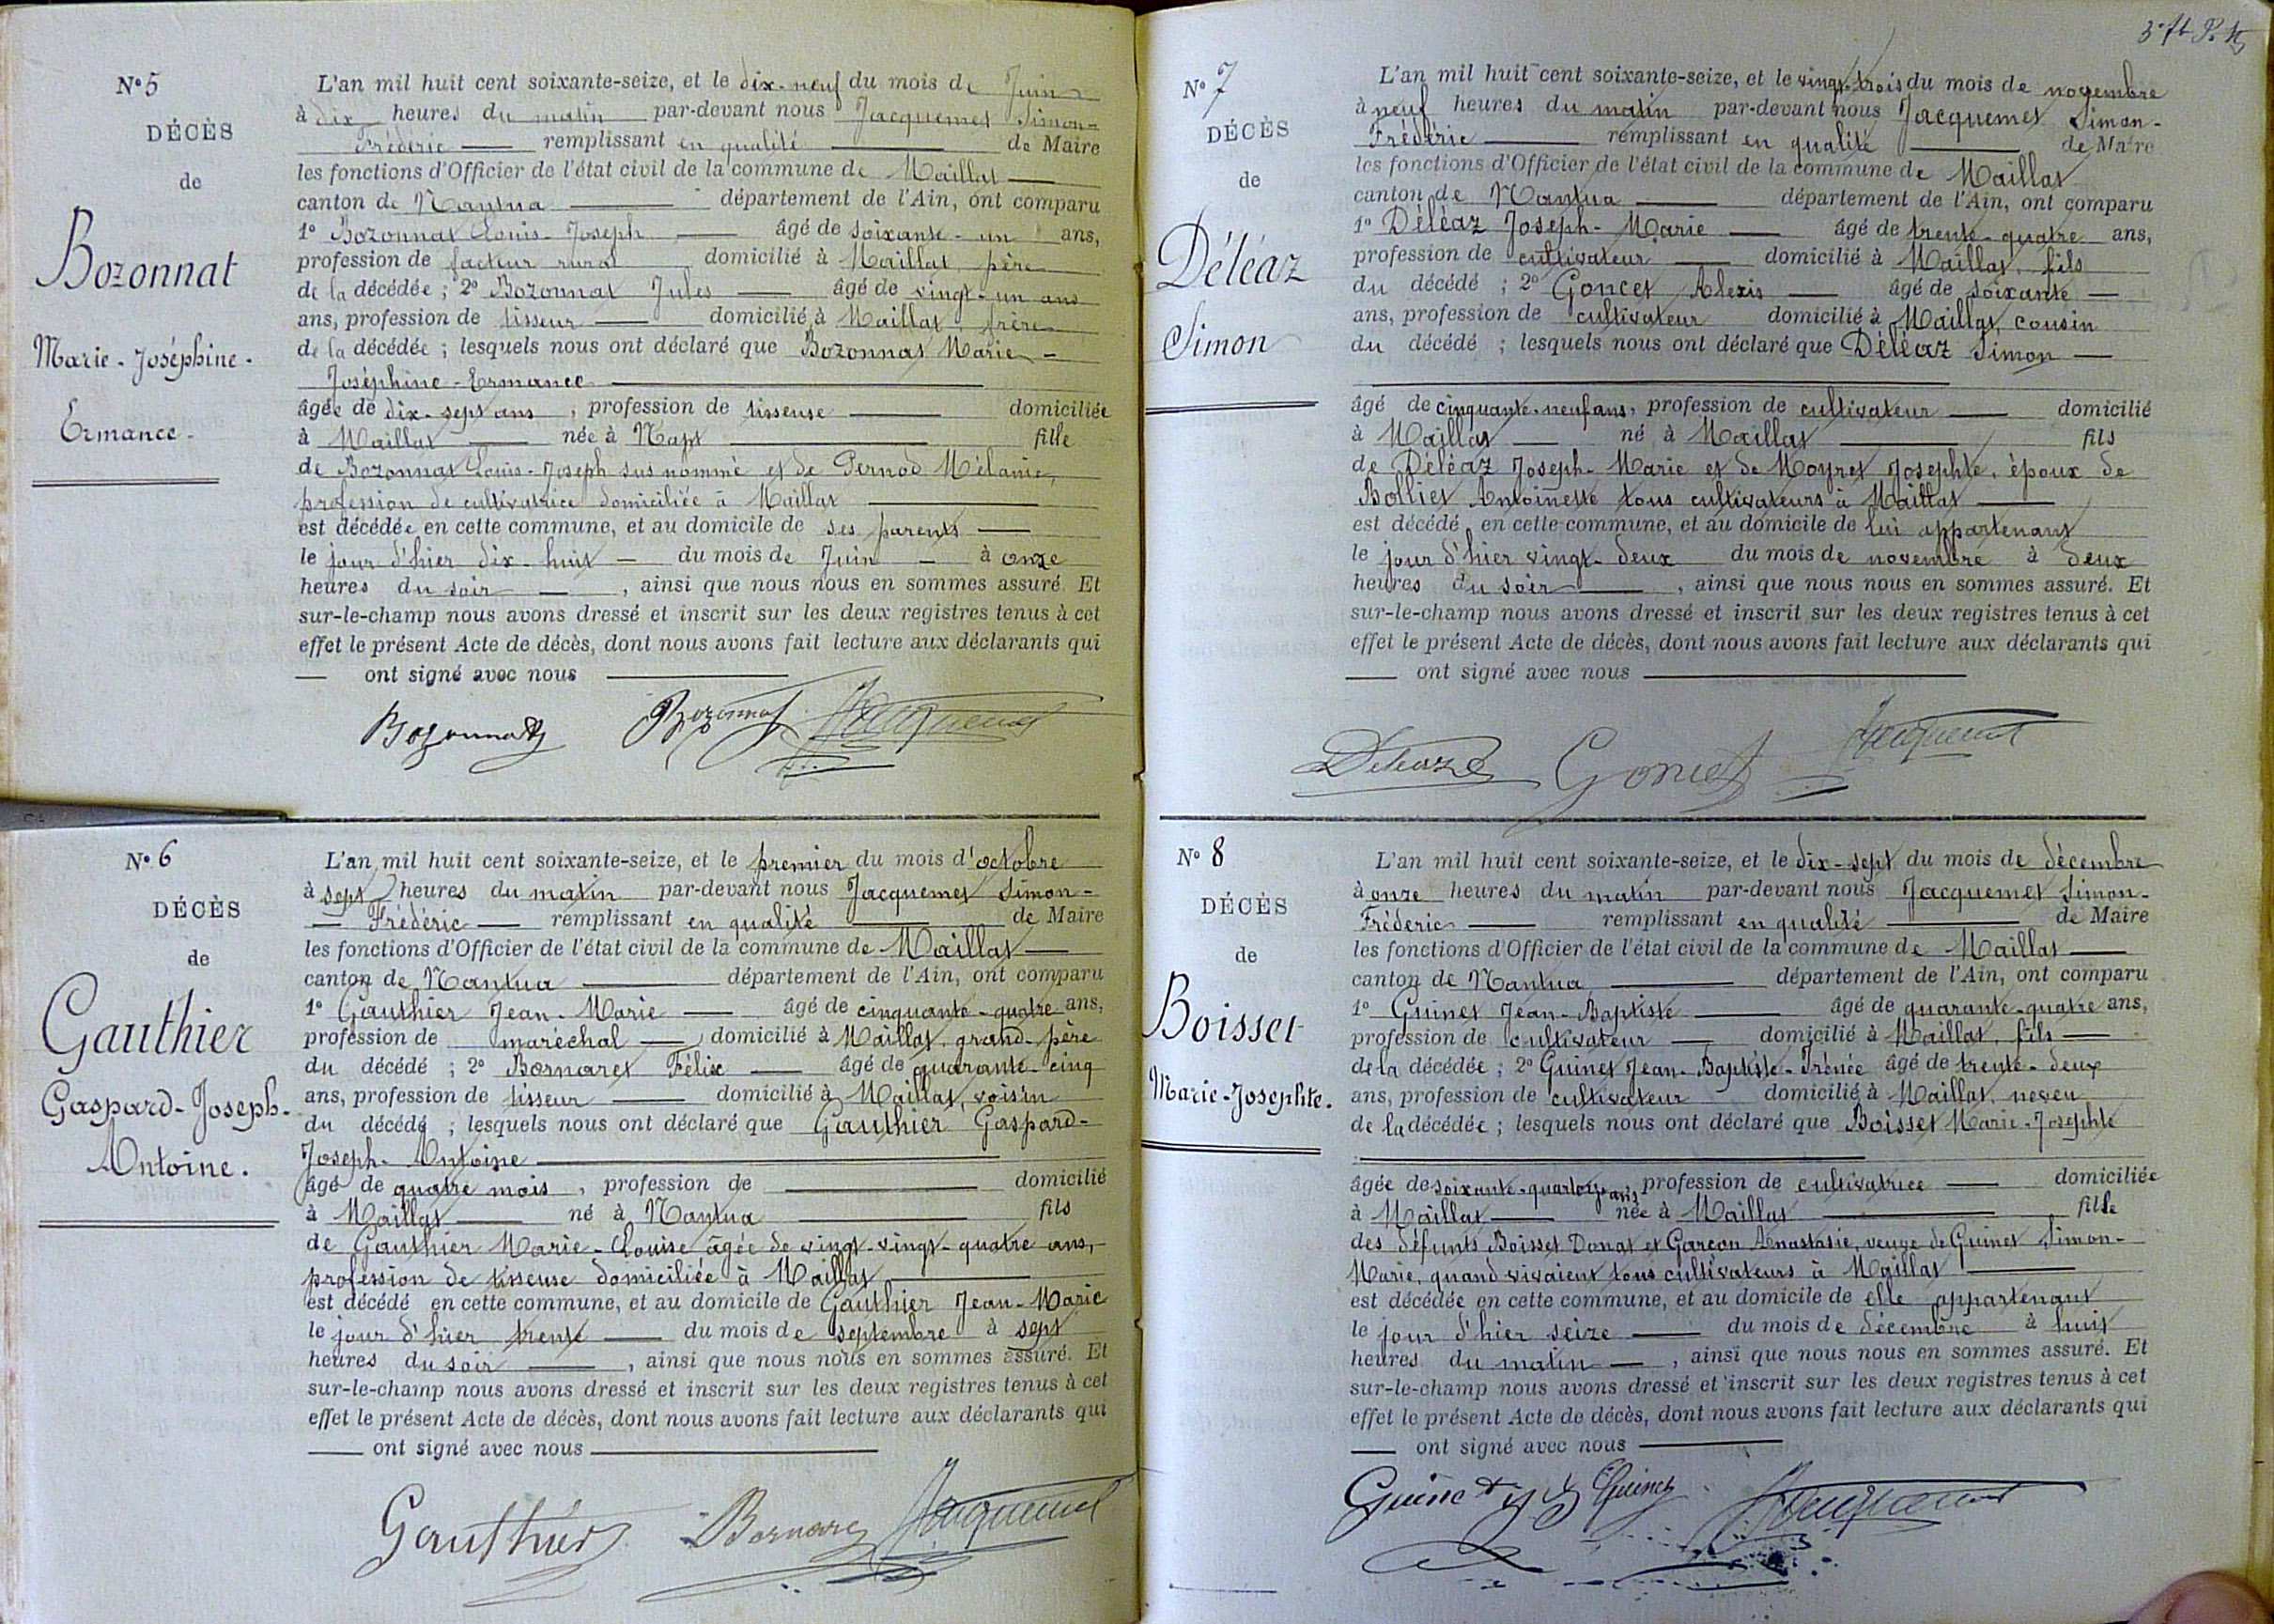 N° 5
DÉCÈS
de
Bozonnat
Marie-Joséphine-
Ermance.
L'an mil huit cent soixante-seize, et le dix-neuf du mois de Juin
à dix heures du matin par-devant nous Jacquemet Simon-
Frédéric remplissant en qualité de Maire
les fonctions d'Officier de l'état civil de la commune de Maillat
canton de Nantua département de l'Ain, ont comparu
1° Bozonnat Louis-Joseph âgé de soixante-un ans,
profession de facteur rural domicilié à Maillat, père
de la décédée ; 2° Bozonnat Jules âgé de vingt-un ans
ans, profession de tisseur domicilié à Maillat, frère
de la décédée ; lesquels nous ont déclaré que Bozonnat Marie-
Joséphine-Ermance
âgée de dix-sept ans, profession de tisseuse domiciliée
à Maillat née à Napt fille
de Bozonnat Louis-Joseph sus nommé et de Pernod Mélanie,
profession de cultivatrice domiciliée à Maillat
est décédée en cette commune, et au domicile de ses parents
le jour d'hier dix-huit du mois de Juin à onze
heures du soir, ainsi que nous nous en sommes assuré. Et
sur-le-champ nous avons dressé et inscrit sur les deux registres tenus à cet
effet le présent Acte de décès, dont nous avons fait lecture aux déclarants qui
ont signé avec nous
Bozonnat Bozonnat Jacquemet
N° 6
DÉCÈS
de
Gauthier
Gaspard-Joseph-
Antoine.
L'an mil huit cent soixante-seize, et le premier du mois d'octobre
à sept heures du matin par-devant nous Jacquemet Simon-
Frédéric remplissant en qualité de Maire
les fonctions d'Officier de l'état civil de la commune de Maillat
canton de Nantua département de l'Ain, ont comparu
1° Gauthier Jean-Marie âgé de cinquante-quatre ans,
profession de maréchal domicilié à Maillat, grand-père
du décédé ; 2° Bornaret Félix âgé de quarante-cinq
ans, profession de tisseur domicilié à Maillat, voisin
du décédé ; lesquels nous ont déclaré que Gauthier Gaspard-
Joseph-Antoine
âgé de quatre mois, profession de domicilié
à Maillat né à Nantua fils
de Gauthier Marie-Louise âgée de vingt-vingt-quatre ans,
profession de tisseuse domiciliée à Maillat
est décédé en cette commune, et au domicile de Gauthier Jean-Marie
le jour d'hier trente du mois de septembre à sept
heures du soir, ainsi que nous nous en sommes assuré. Et
sur-le-champ nous avons dressé et inscrit sur les deux registres tenus à cet
effet le présent Acte de décès, dont nous avons fait lecture aux déclarants qui
ont signé avec nous
Gauthier Bornaret Jacquemet
N° 7
DÉCÈS
de
Déléaz
Simon
L'an mil huit cent soixante-seize, et le vingt-trois du mois de novembre
à neuf heures du matin par-devant nous Jacquemet Simon-
Frédéric remplissant en qualité de Maire
les fonctions d'Officier de l'état civil de la commune de Maillat
canton de Nantua département de l'Ain, ont comparu
1° Déléaz Joseph-Marie âgé de trente-quatre ans,
profession de cultivateur domicilié à Maillat, fils
du décédé ; 2° Goncet Alexis âgé de soixante
ans, profession de cultivateur domicilié à Maillat, cousin
du décédé ; lesquels nous ont déclaré que Déléaz Simon
âgé de cinquante-neuf ans, profession de cultivateur domicilié
à Maillat né à Maillat fils
de Déléaz Joseph-Marie et de Moyret Josephte, époux de
Bolliet Antoinette tous cultivateurs à Maillat
est décédé en cette commune, et au domicile de lui appartenant
le jour d'hier vingt-deux du mois de novembre à deux
heures du soir, ainsi que nous nous en sommes assuré. Et
sur-le-champ nous avons dressé et inscrit sur les deux registres tenus à cet
effet le présent Acte de décès, dont nous avons fait lecture aux déclarants qui
ont signé avec nous
Déléaz Goncet Jacquemet
N° 8
DÉCÈS
de
Boisset
Marie-Josephte.
L'an mil huit cent soixante-seize, et le dix-sept du mois de décembre
à onze heures du matin par-devant nous Jacquemet Simon-
Fréderic remplissant en qualité de Maire
les fonctions d'Officier de l'état civil de la commune de Maillat
canton de Nantua département de l'Ain, ont comparu
1° Guinet Jean-Baptiste âgé de quarante-quatre ans,
profession de cultivateur domicilié à Maillat, fils
de la décédée ; 2° Guinet Jean-Baptiste-Irénée âgé de trente-deux
ans, profession de cultivateur domicilié à Maillat, neveu
de la décédée ; lesquels nous ont déclaré que Boisset Marie-Josephte
âgée de soixante-quatorze ans, profession de cultivatrice domiciliée
à Maillat née à Maillat fille
des défunts Boisset Donat et Garçon Anastasie, veuve de Guinet Simon-
Marie, quand vivaient tous cultivateurs à Maillat
est décédée en cette commune, et au domicile de elle appartenant
le jour d'hier seize du mois de décembre à huit
heures du matin, ainsi que nous nous en sommes assuré. Et
sur-le-champ nous avons dressé et inscrit sur les deux registres tenus à cet
effet le présent Acte de décès, dont nous avons fait lecture aux déclarants qui
ont signé avec nous
Guinet Guinet Jacquemet